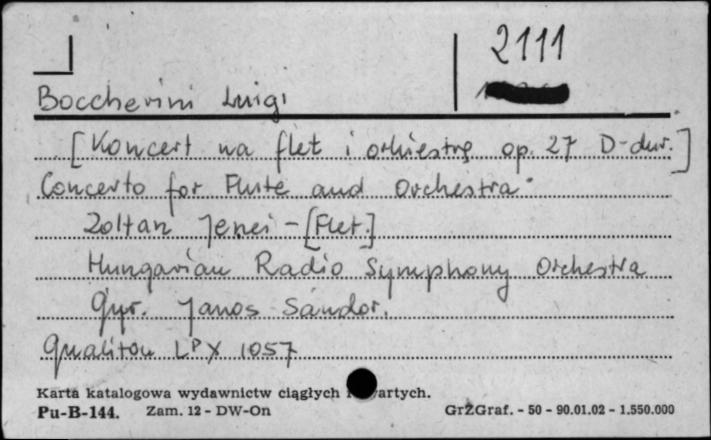 2111
Boccherini Luigi
[Koncert na flet i orkiestrę op. 27 D-dur.]
Concerto for Flute and Orchestra
Zoltan Jenei - [Flet.]
Hungarian Radio Symphony Orchestra
Dyr. Janos Sándor.
Qualiton LPX 1057
Karta katalogowa wydawnictw ciągłych i
Pu-B-144. Zam. 12 - DW-On GrZGraf. - 50 - 90.01.02 - 1.550.000